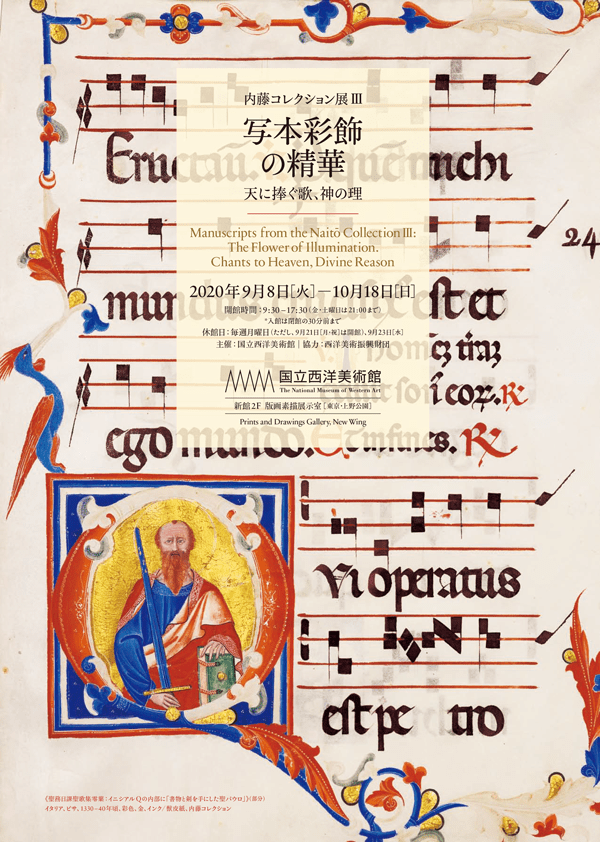 内藤コレクション展 III
写本彩飾
の精華
天に捧ぐ歌、神の理
Manuscripts from the Naitō Collection III:
The Flower of Illumination.
Chants to Heaven, Divine Reason
2020年9月8日[火]—10月18日[日]
開館時間:9:30–17:30(金・土曜日は21:00まで)
*入館は閉館の30分前まで
休館日:毎週月曜日(ただし、9月21日[月・祝]は開館)、9月23日[水]
主催:国立西洋美術館|協力:西洋美術振興財団
国立西洋美術館
The National Museum of Western Art
新館2F 版画素描展示室[東京・上野公園]
Prints and Drawings Gallery, New Wing
24
ego mundo. Et infines. R
Vi operatus
est pe tro
《聖務日課聖歌集零葉:イニシアルQの内部に「書物と剣を手にした聖パウロ」》(部分)
イタリア、ピサ、1330–40年頃、彩色、金、インク/獣皮紙、内藤コレクション